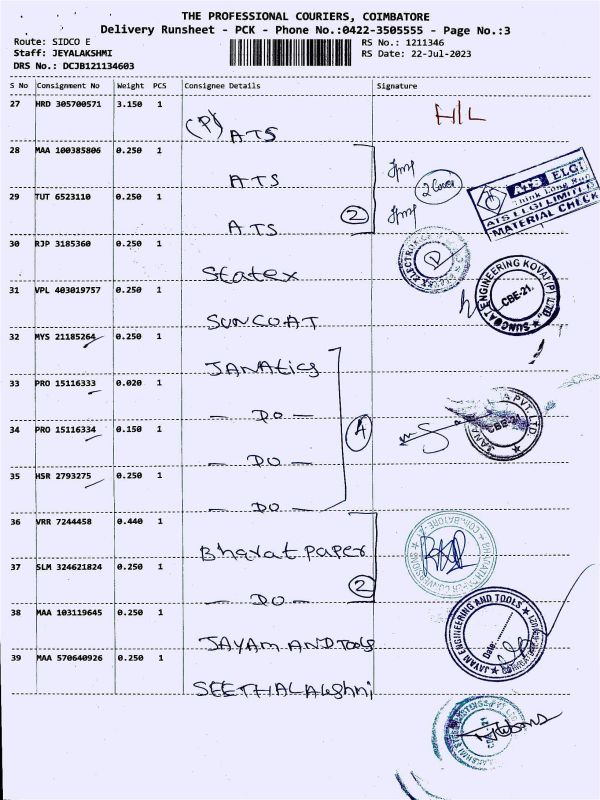 THE PROFESSIONAL COURIERS, COIMBATORE
Delivery Runsheet - PCK - Phone No.:0422-3505555 - Page No.:3
Route: SIDCO E
RS No.: 1211346
Staff: JEYALAKSHMI
RS Date: 22-Jul-2023
DRS No.: DCJB121134603
S No Consignment No Weight PCS Consignee Details Signature
27 HRD 305700571 3.150 1
H/L
(P) ATS
28 MAA 100385806 0.250 1
ATS
2 Cover
ATS ELGI
Think Long Run
ATS ELGI LIMITED
MATERIAL CHECK
29 TUT 6523110 0.250 1
ATS
2
30 RJP 3185360 0.250 1
Statex
31 VPL 403019757 0.250 1
SUNCOAT ENGINEERING KOVAI (P) LTD.
CBE-21.
SUNCOAT
32 MYS 21185264 0.250 1
JANAtics
33 PRO 15116333 0.020 1
- DO -
34 PRO 15116334 0.150 1
4
PVT. LTD.
CBE-21
- DO -
35 HSR 2793275 0.250 1
- DO -
36 VRR 7244458 0.440 1
Bharat paper
37 SLM 324621824 0.250 1
2
- DO -
38 MAA 103119645 0.250 1
JAYAM ENGINEERING AND TOOLS
Date:
JAYAM AND TOOLS
39 MAA 570640926 0.250 1
SEETHALAkshmi